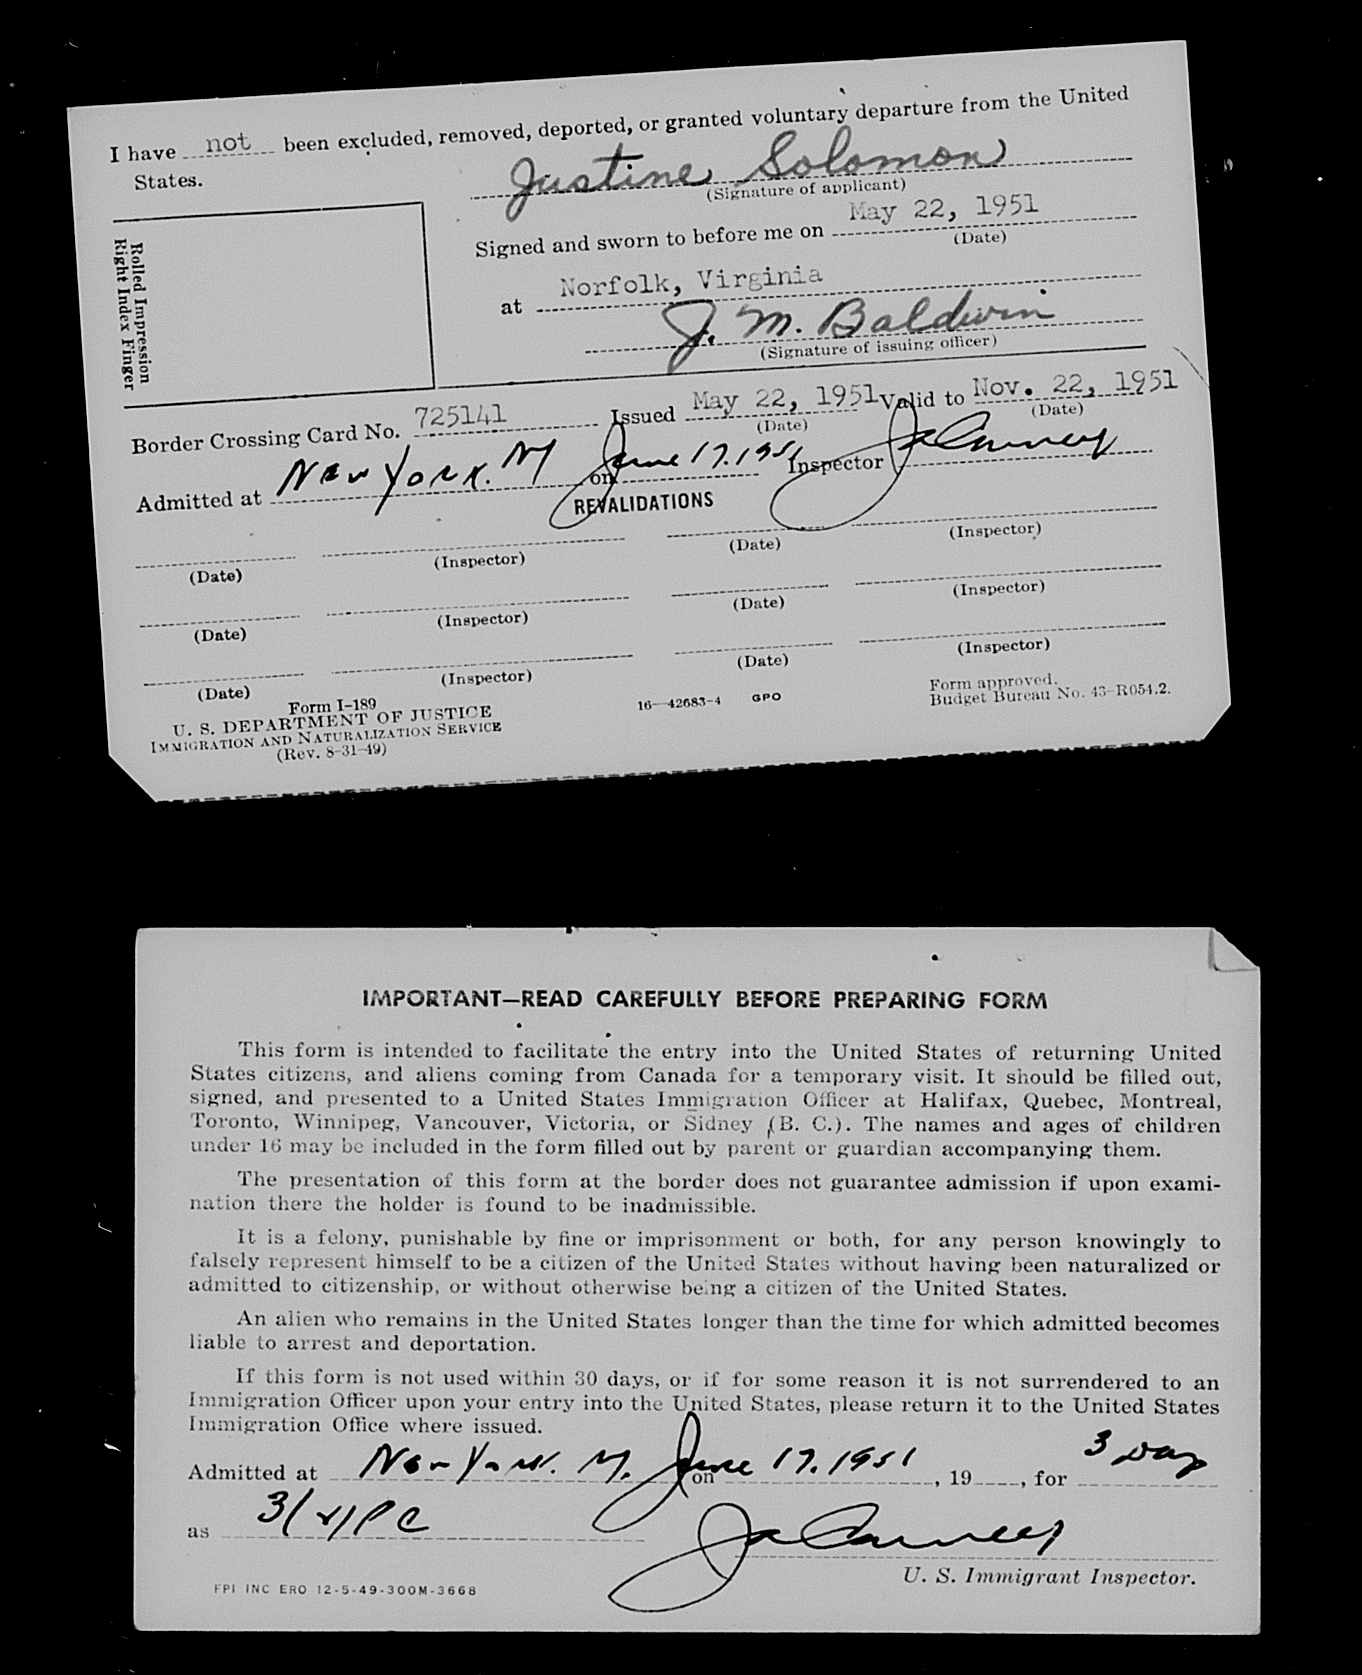 I have not been excluded, removed, deported, or granted voluntary departure from the United
States.
Justine Solomon
(Signature of applicant)
Rolled Impression
Right Index Finger
Signed and sworn to before me on May 22, 1951
(Date)
at Norfolk, Virginia
J. M. Baldwin
(Signature of issuing officer)
Border Crossing Card No. 725141 Issued May 22, 1951 Valid to Nov. 22, 1951
(Date) (Date)
Admitted at New York. NY on June 17. 1951 Inspector
REVALIDATIONS
(Date) (Inspector) (Date) (Inspector)
(Date) (Inspector) (Date) (Inspector)
(Date) (Inspector) (Date) (Inspector)
Form I-189
U. S. DEPARTMENT OF JUSTICE
IMMIGRATION AND NATURALIZATION SERVICE
(Rev. 8-31-49)
16—42683-4 GPO
Form approved.
Budget Bureau No. 43-R054.2.
IMPORTANT—READ CAREFULLY BEFORE PREPARING FORM
This form is intended to facilitate the entry into the United States of returning United
States citizens, and aliens coming from Canada for a temporary visit. It should be filled out,
signed, and presented to a United States Immigration Officer at Halifax, Quebec, Montreal,
Toronto, Winnipeg, Vancouver, Victoria, or Sidney (B. C.). The names and ages of children
under 16 may be included in the form filled out by parent or guardian accompanying them.
The presentation of this form at the border does not guarantee admission if upon exami-
nation there the holder is found to be inadmissible.
It is a felony, punishable by fine or imprisonment or both, for any person knowingly to
falsely represent himself to be a citizen of the United States without having been naturalized or
admitted to citizenship, or without otherwise being a citizen of the United States.
An alien who remains in the United States longer than the time for which admitted becomes
liable to arrest and deportation.
If this form is not used within 30 days, or if for some reason it is not surrendered to an
Immigration Officer upon your entry into the United States, please return it to the United States
Immigration Office where issued.
Admitted at New York. NY. on June 17. 1951, 19, for 3 Day
as
U. S. Immigrant Inspector.
FPI INC ERO 12-5-49-300M-3668